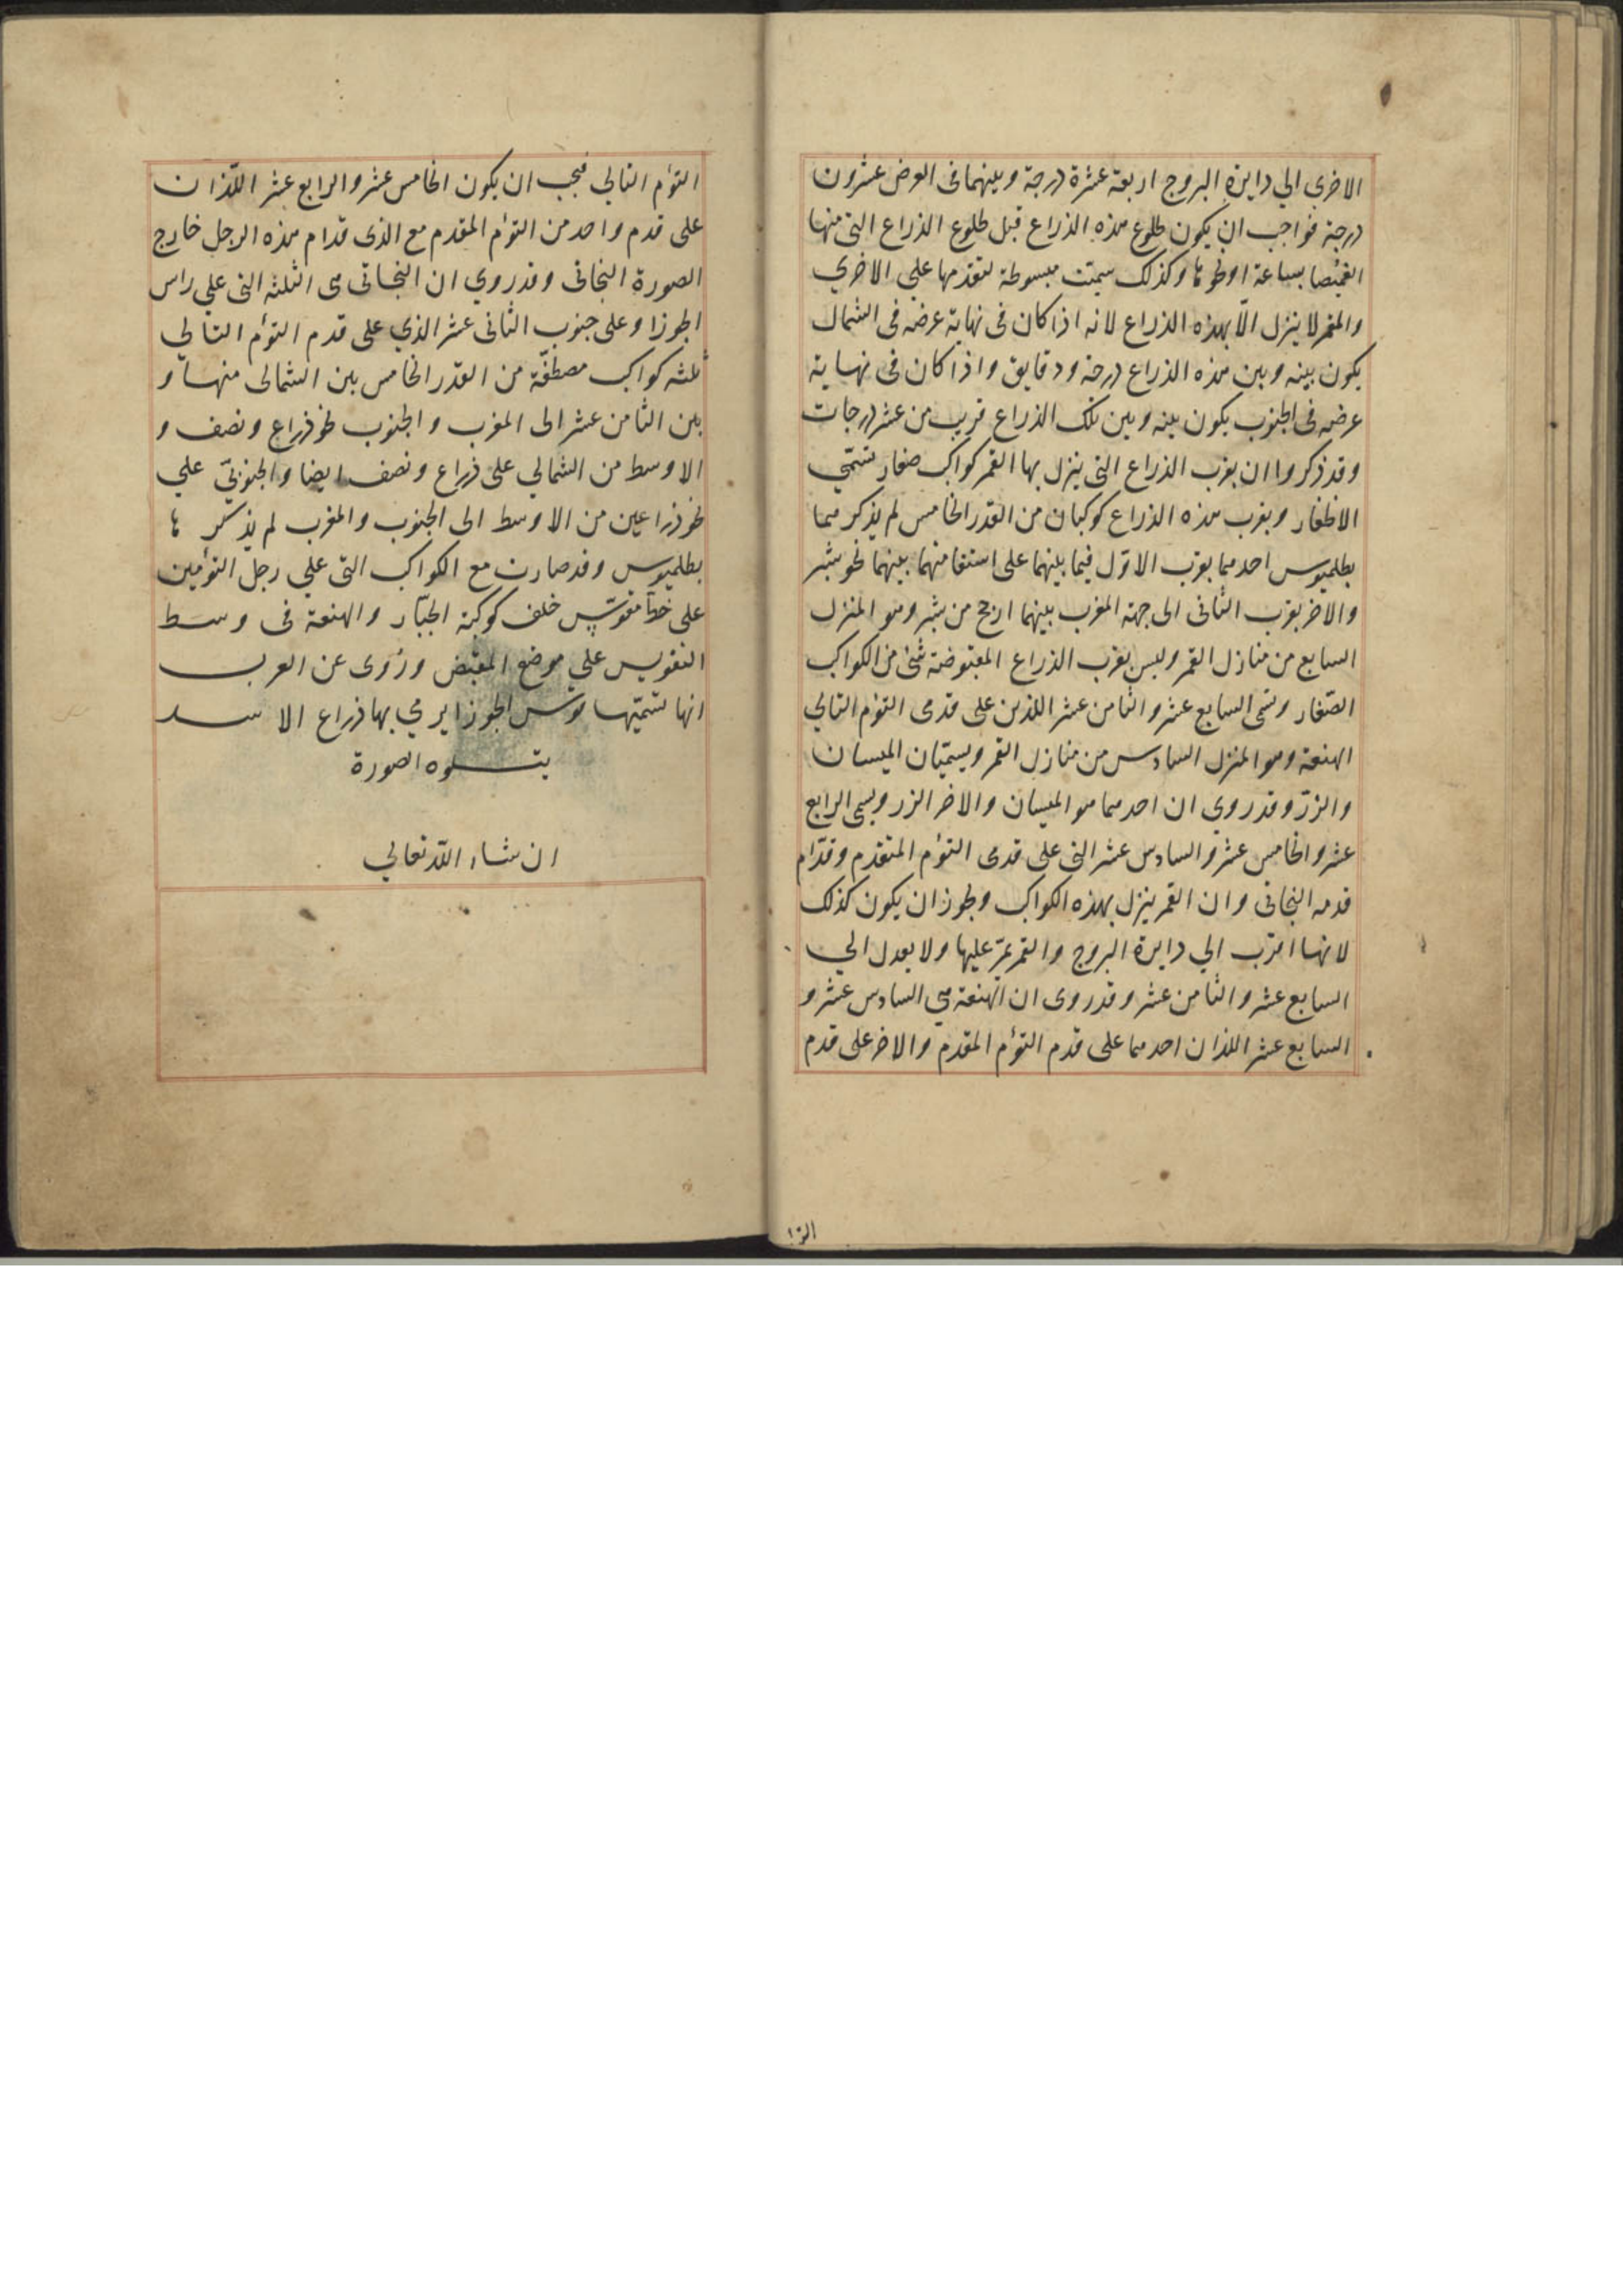 الاخرى الي دايرة البروج اربعة عشرة درجة وبينهما فى العرض عشرون
درجة فواجب ان يكون طلوع هذه الذراع قبل طلوع الذراع التى منها
الغميصا بساعة او نحوها وكذلك سميت مبسوطة لتقدمها على الاخري
والقمر لا ينزل الّا بهذه الذراع لانه اذا كان فى نهاية عرضه فى الشمال
يكون بينه وبين هذه الذراع درجة ودقايق واذا كان فى نهاية
عرضه فى الجنوب يكون بينه وبين تلك الذراع قريب من عشر درجات
وقد ذكروا ان بقرب الذراع التى ينزل بها القمر كواكب صغار تسمّي
الاظفار وبقرب هذه الذراع كوكبان من القدر الخامس لم يذكرهما
بطلميوس احدهما بقرب الاوّل فيما بينهما على استقامتهما بينهما نحو شبر
والاخر بقرب الثانى الى جهة المغرب بينهما ارجح من شبر وهو المنزل
السابع من منازل القمر وليس بقرب الذراع المقبوضة شئ من الكواكب
الصّغار وتسمى السابع عشر والثامن عشر اللذين على قدمى التؤم التالي
الهنعة وهو المنزل السادس من منازل القمر ويسمّيان الميسان
والزرّ وقد روي ان احدهما هو الميسان والاخر الزر ويسمى الرابع
عشر والخامس عشر والسادس عشر التى على قدمى التؤم المتقدم وقدّام
قدمه النجاتى وان القمر ينزل بهذه الكواكب ويجوز ان يكون كذلك
لانها اقرب الي دايرة البروج والقمر يمرّ عليها ولا يعدل الي
السابع عشر والثامن عشر وقد روى ان الهنعة هي السادس عشر و
السابع عشر اللذان احدهما على قدم التؤم المقدم والاخر على قدم
التؤم التالي فيجب ان يكون الخامس عشر والرابع عشر اللّذان
على قدم واحد من التؤم المقدم مع الذى قدام هذه الرجل خارج
الصورة النجاتى وقد روي ان النجاتى هى الثلثه التى علي راس
الجوزا وعلى جنوب الثانى عشر الذي على قدم التؤم التالي
ثلثه كواكب مصطفّة من القدر الخامس بين الشمالى منها و
بين الثامن عشر الى المغرب والجنوب نحو ذراع ونصف و
الاوسط من الشمالي على ذراع ونصف ايضا والجنوبيّ علي
نحو ذراعين من الاوسط الى الجنوب والمغرب لم يذكر ها
بطلميوس وقد صارت مع الكواكب التى علي رجل التؤمين
على خطّ مقوّس خلف كوكبة الجبّار والهنعة فى وسط
التقويس علي موضع المقبض وروى عن العرب
انها تسمّيها قوس الجوزا يرمي بها ذراع الاسد
يتلوه الصورة
ان شاء الله تعالي